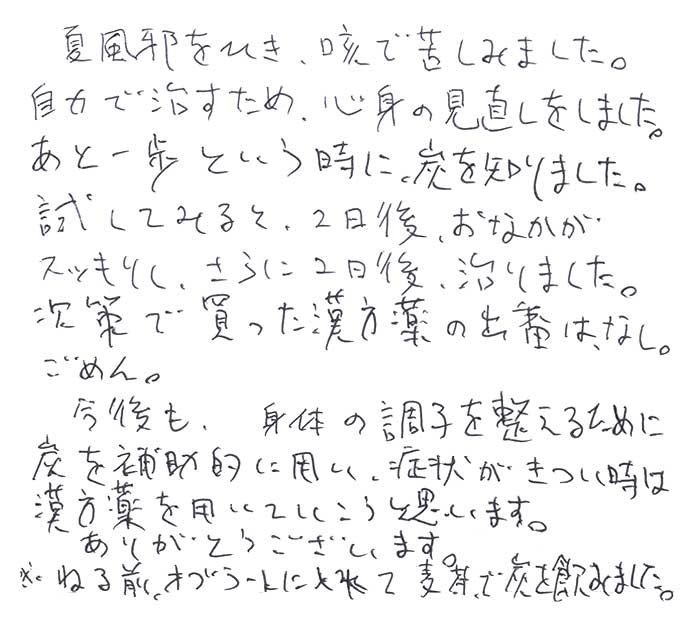 夏風邪をひき、咳で苦しみました。
自力で治すため、心身の見直しをしました。
あと一歩という時に、炭を知りました。
試してみると、2日後、おなかが
スッキリし、さらに2日後、治りました。
次第で買った漢方薬の出番は、なし。
ごめん。
今後も、身体の調子を整えるために
炭を補助的に用い、症状がきつい時は
漢方薬を用いていこうと思います。
ありがとうございます。
※ねる前、オブラートに入れて麦茶で炭を飲みました。